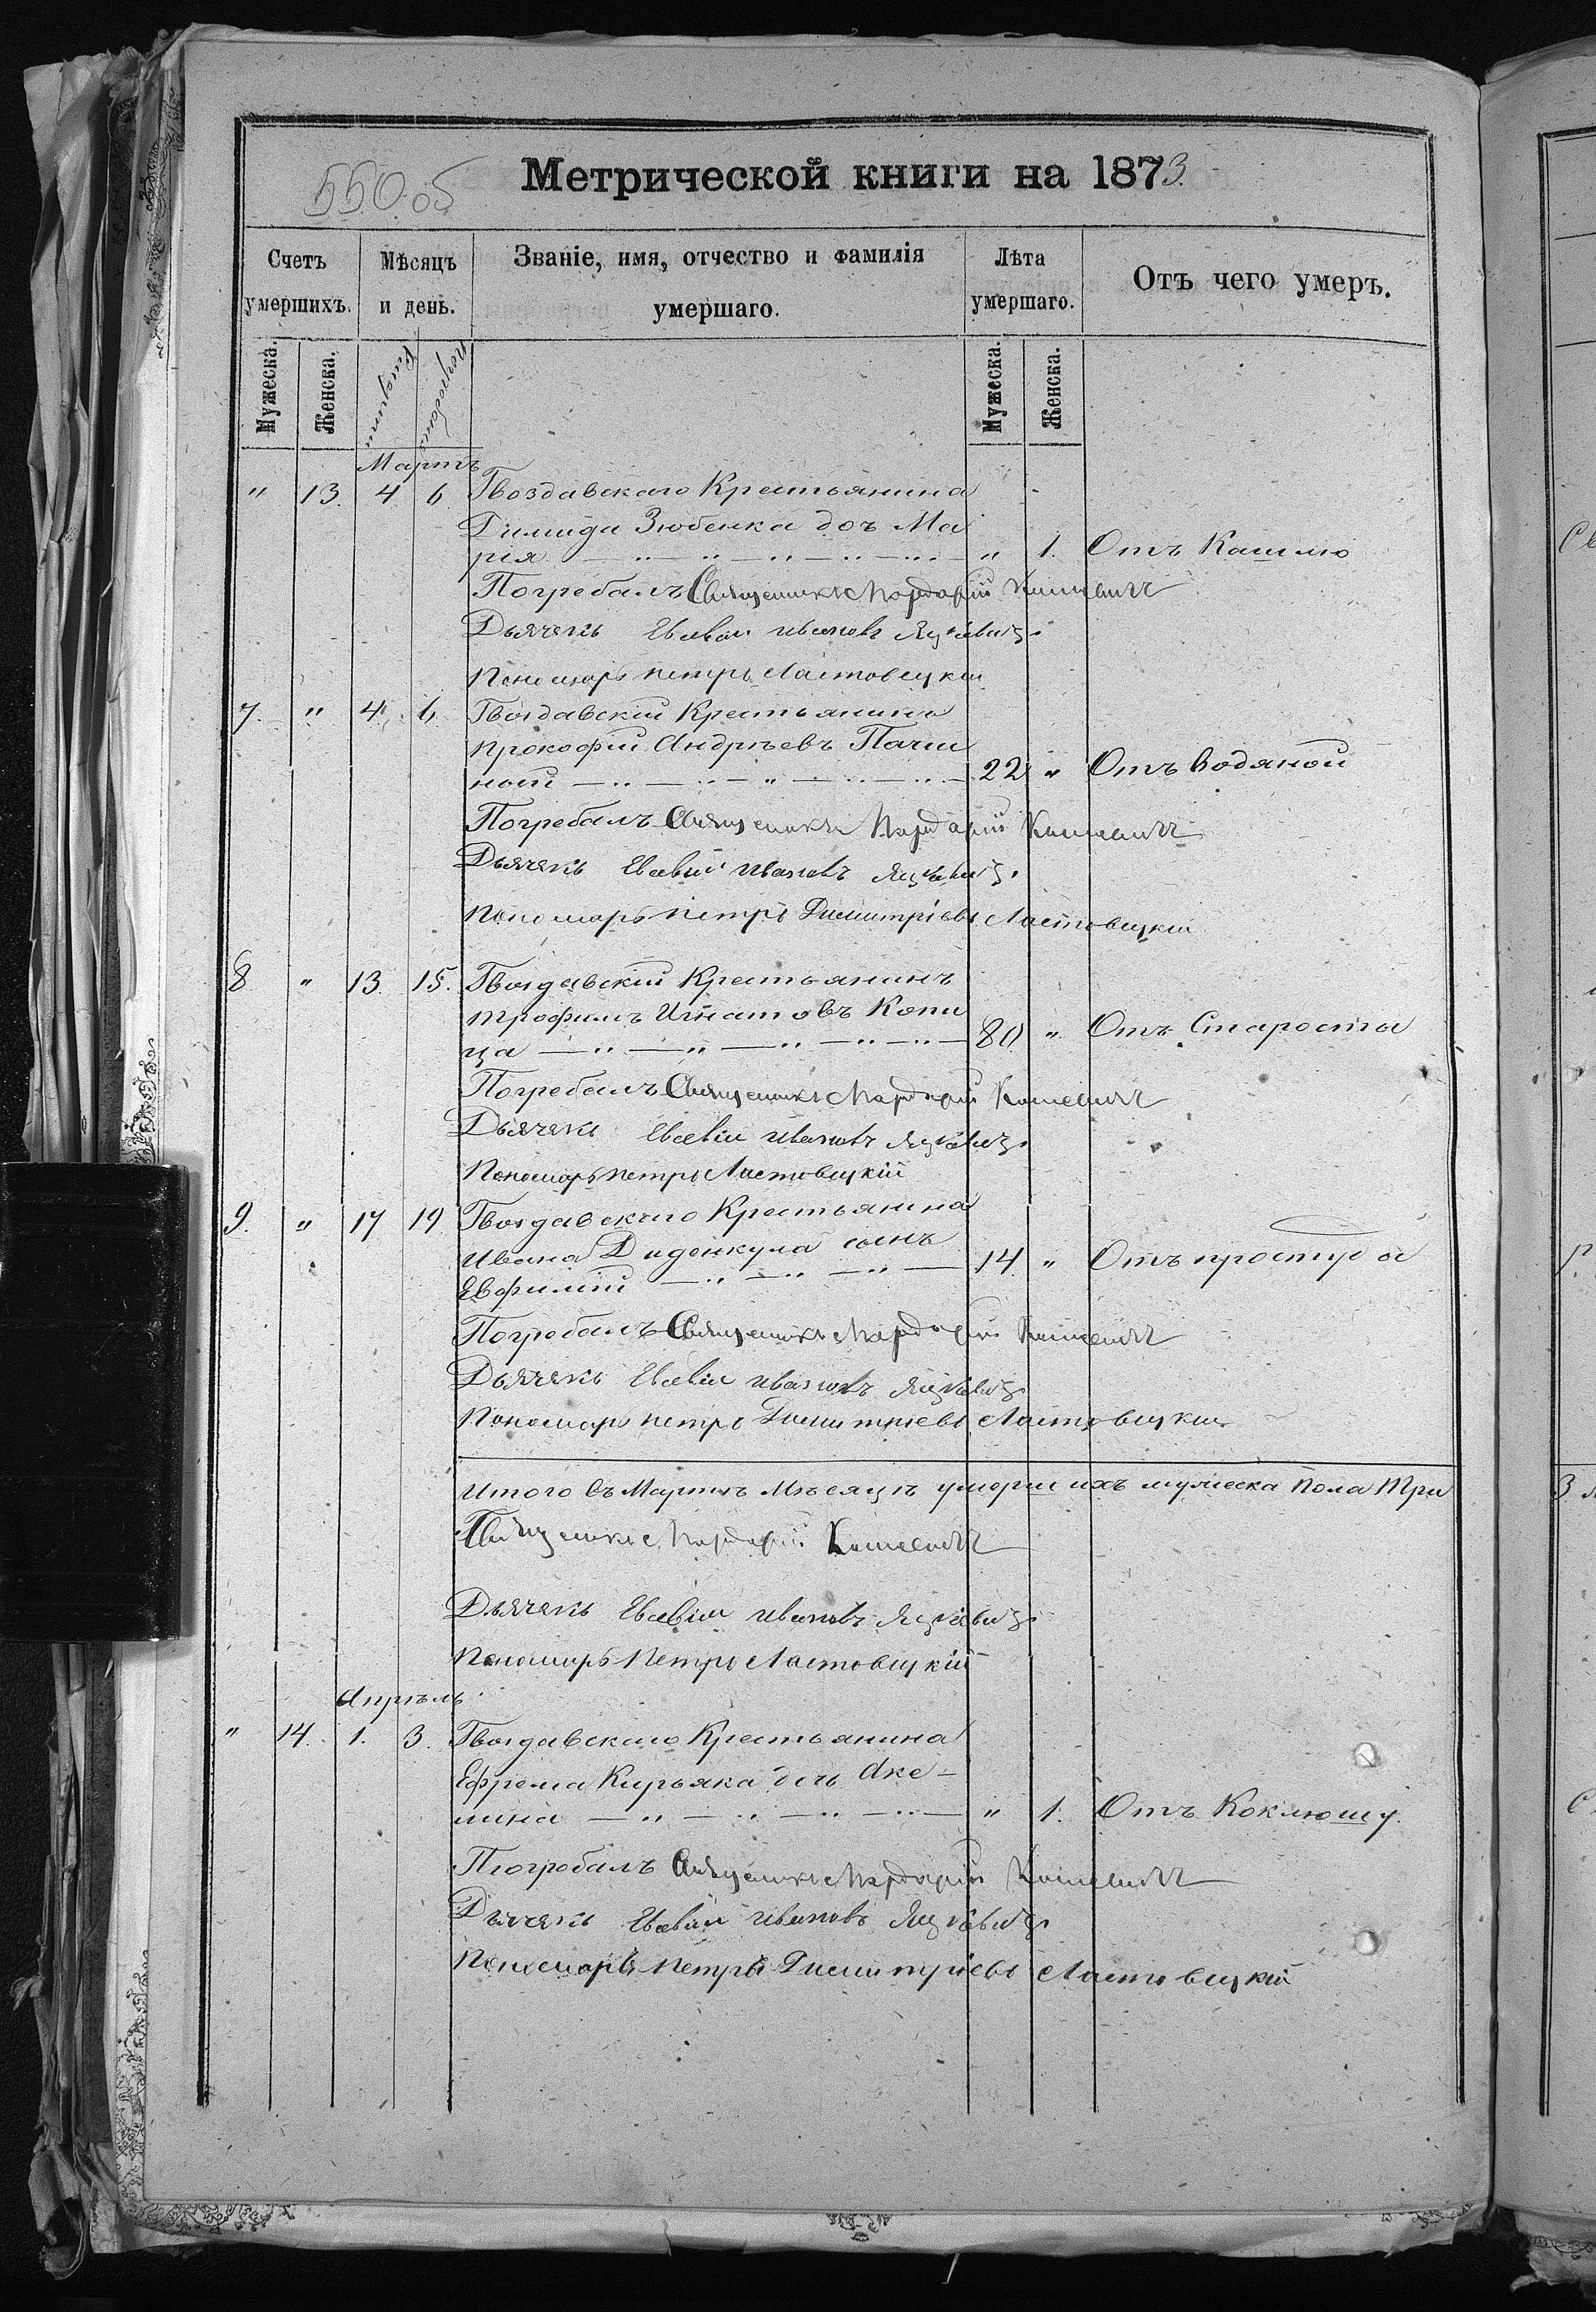 550 об
Метрической книги на 1873.
Счетъ умершихъ. Мѣсяцъ и день. Званіе, имя, отчество и фамилія умершаго. Лѣта умершаго. Отъ чего умеръ.
Мужеска. Женска. Смерти Погребенія Мужеска. Женска.
Мартъ
" 13. 4 6 Гвоздавскаго Крестьянина
Зюбенка доч Ма
рія " 1. Отъ Кашлю
Погребалъ Священникъ Мардарій
Дьячекъ Евсевій Ивановъ Яцкевичъ
Пономарь Петръ Ластовецкій
7. " 4. 6. Гвоздавскій Крестьянинъ
Прокофій Андрѣевъ Пачи
ной 22 " Отъ Водяной
Погребалъ Священникъ Мардарій
Дьячекъ Евсевій Ивановъ Яцкевичъ
Пономарь Петръ Димитріевъ Ластовецкій
8 " 13. 15. Гвоздавскій Крестьянинъ
Трофимъ Игнатовъ Копи
ца 80. " Отъ Старосты
Погребалъ Священникъ Мардарій
Дьячекъ Евсевій Ивановъ Яцкевичъ
Пономарь Петръ Ластовецкій
9. " 17 19 Гвоздавскаго Крестьянина
Ивана Диденкула сынъ
Евфимій 14. " Отъ простуды
Погребалъ Священникъ Мардарій
Дьячекъ Евсевій Ивановъ Яцкевичъ
Пономарь Петръ Димитріевъ Ластовецкій
Итого въ Мартѣ Мѣсяцѣ умершихъ мужеска Пола Три
Священникъ Мардарій
Дьячекъ Евсевій Ивановъ Яцкевичъ
Пономарь Петръ Ластовецкій
Апрѣль
" 14. 1. 3. Гвоздавскаго Крестьянина
Ефрема Кирьяка дочь Аке-
лина " 1. Отъ Коклюшу.
Погребалъ Священникъ Мардарій
Дьячекъ Евсевій Ивановъ Яцкевичъ
Пономарь Петръ Димитріевъ Ластовецкій